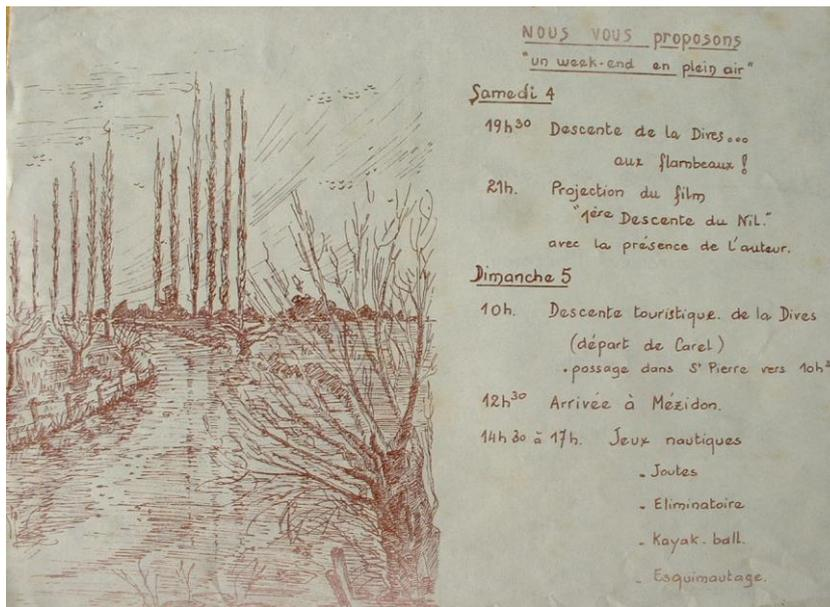 NOUS VOUS proposons
"un week-end en plein air"
Samedi 4
19h30 Descente de la Dives...
aux flambeaux !
21h. Projection du film
"1ère Descente du Nil."
avec la présence de l'auteur.
Dimanche 5
10h. Descente touristique. de la Dives
(départ de Carel)
. passage dans St Pierre vers 10h3
12h30 Arrivée à Mézidon.
14h30 à 17h. Jeux nautiques
- Joutes
- Eliminatoire
- Kayak-ball.
- Esquimautage.